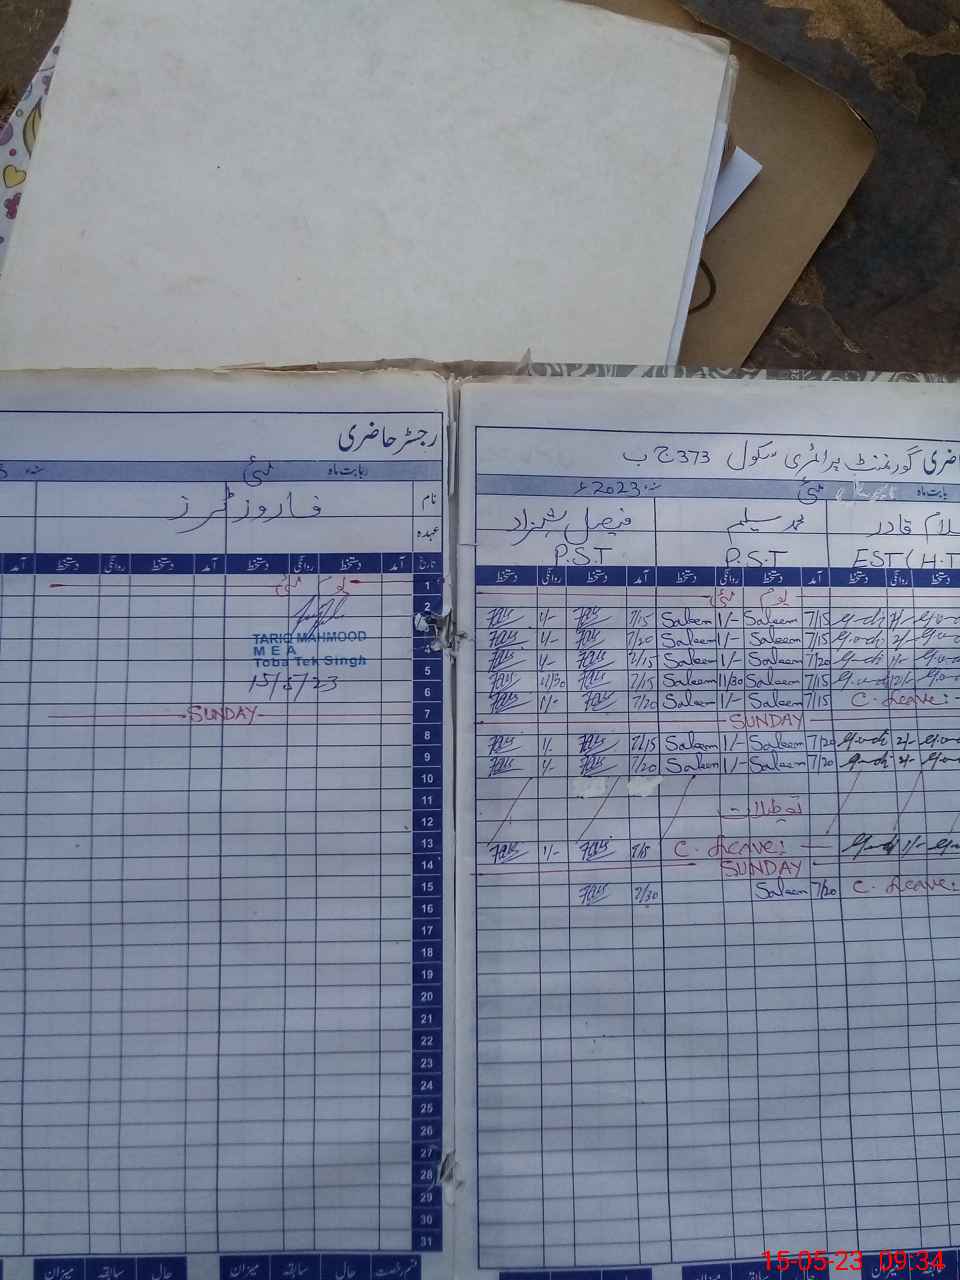 رجسٹر حاضری
بابت ماہ مئی سنہ
نام
عہدہ
تاریخ آمد دستخط روانگی دستخط آمد دستخط روانگی دستخط آمد
1 یوم مئی
2
TARIQ MAHMOOD
4 M E A
Toba Tek Singh
5 15/5/23
6
7 SUNDAY
8
9
10
11
12
13
14
15
16
17
18
19
20
21
22
23
24
25
26
27
28
29
30
31
قسم رخصت حال سابقہ میزان حال سابقہ میزان
حاضری گورنمنٹ پرائمری سکول 373 ج ب
بابت ماہ مئی سنہ 2023ء
غلام قادر محمد سلیم فیصل شہزاد
EST (H.T P.S.T P.S.T
دستخط روانگی دستخط آمد دستخط روانگی دستخط آمد دستخط روانگی دستخط
یوم مئی
7/15 1/- Saleem 1/- Saleem 7/15
7/20 1/- Saleem 1/- Saleem 7/15
7/15 1/- Saleem 1/- Saleem 7/20
7/15 11/30 Saleem 11/30 Saleem 7/15
7/20 1/- Saleem 1/- Saleem 7/15 C. Leave:
SUNDAY
7/15 1/- Saleem 1/- Saleem 7/20
7/20 1/- Saleem 1/- Saleem 7/20
تعطیلات
1/- 7/15 C. Leave: 1/-
SUNDAY
7/30 Saleem 7/20 C. Leave:
میزان سابقہ حال میزان سابقہ حال
15-05-23 09:34